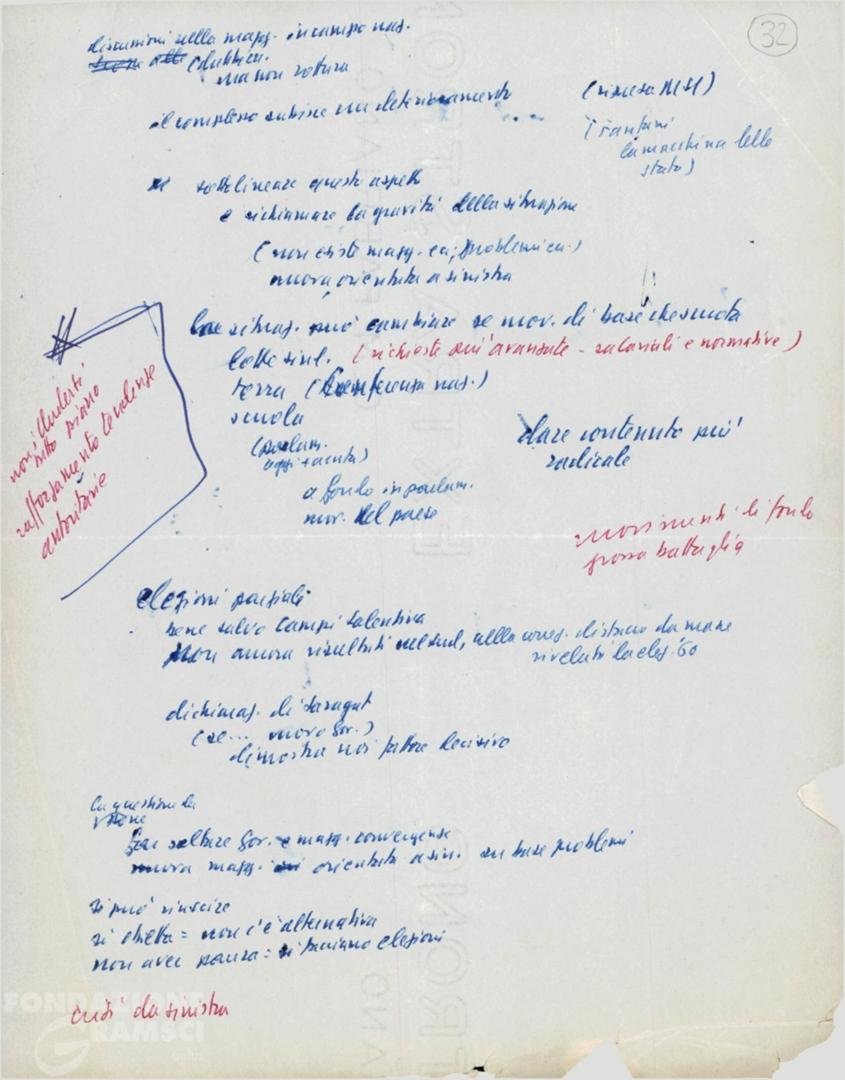 32
discussioni nella magg. in campo naz.
(dubbia.
ma non rottura
il complesso subisce un deterioramento
(ripresa MSI)
(Fanfani
la macchina dello
stato)
sottolineare questo aspetto
e richiamare la gravità della situazione
(non esiste magg. ca; problemi ca.)
nuova orientata a sinistra
situaz. può cambiare se mov. di base che smuota
lotte sind. (richieste più avanzate - salariali e normative)
terra (Conferenza naz.)
scuola
(parlam.
oggi
a fondo in parlam.
mov. del paese
dare contenuto più
radicale
non chiuderti
sutto piano
rafforzamento tendenze
autoritarie
movimenti di fondo
grossa battaglia
elezioni parziali
bene salvo Campi Salentina
Non ancora risultati nel sud, nella distacco da mane
rivelati la elez. '60
dichiaraz. di Saragat
(se... nuovo Gov.)
dimostra noi fattore decisivo
La questione da
far saltare Gov. e magg. convergenze
nuova magg. orientata a sin. su base problemi
si può riuscire
si obietta = non c'è alternativa
non aver paura = si facciano elezioni
crisi da sinistra
FONDAZIONE
GRAMSCI